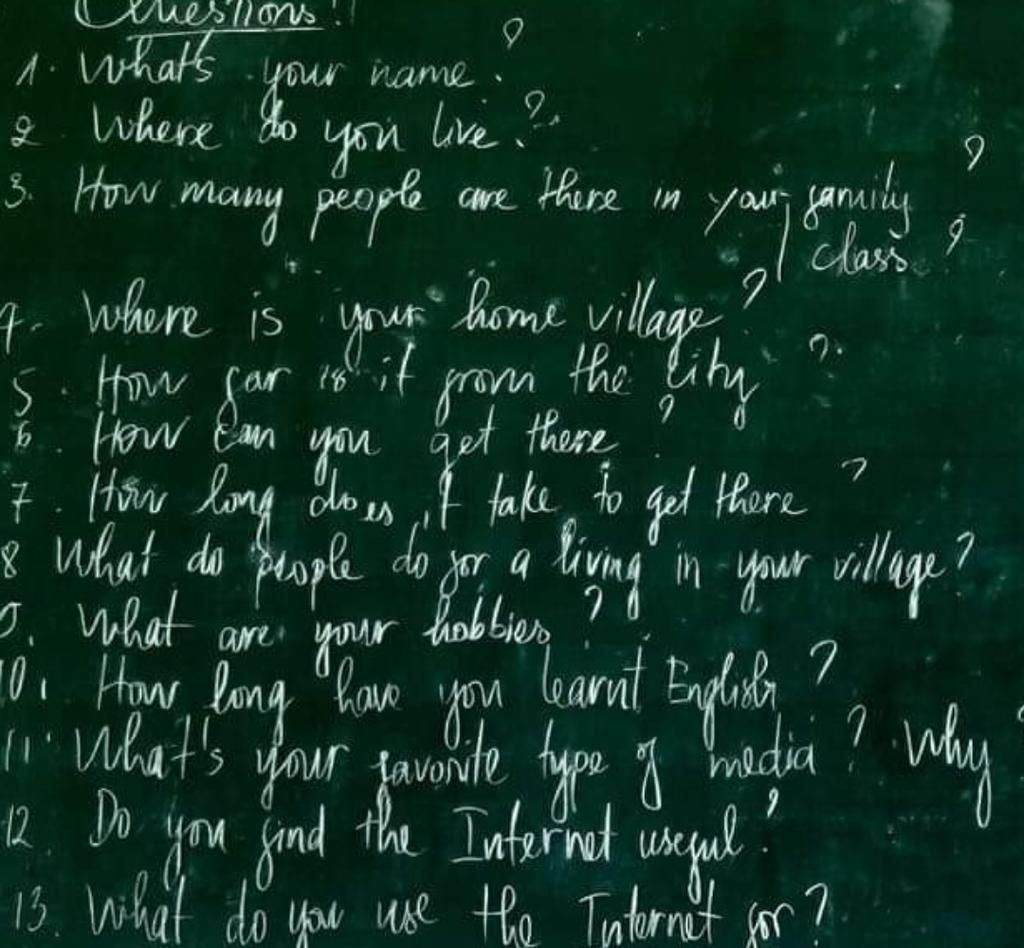 Questions!
1. What's your name?
2 Where do you live?
3. How many people are there in your family?
class?
4. Where is your home village?
5. How far is it from the city?
6. How can you get there?
7. How long does it take to get there?
8 What do people do for a living in your village?
9. What are your hobbies?
10. How long have you learnt English?
11 What's your favorite type of media? Why?
12. Do you find the Internet useful?
13. What do you use the Internet for?